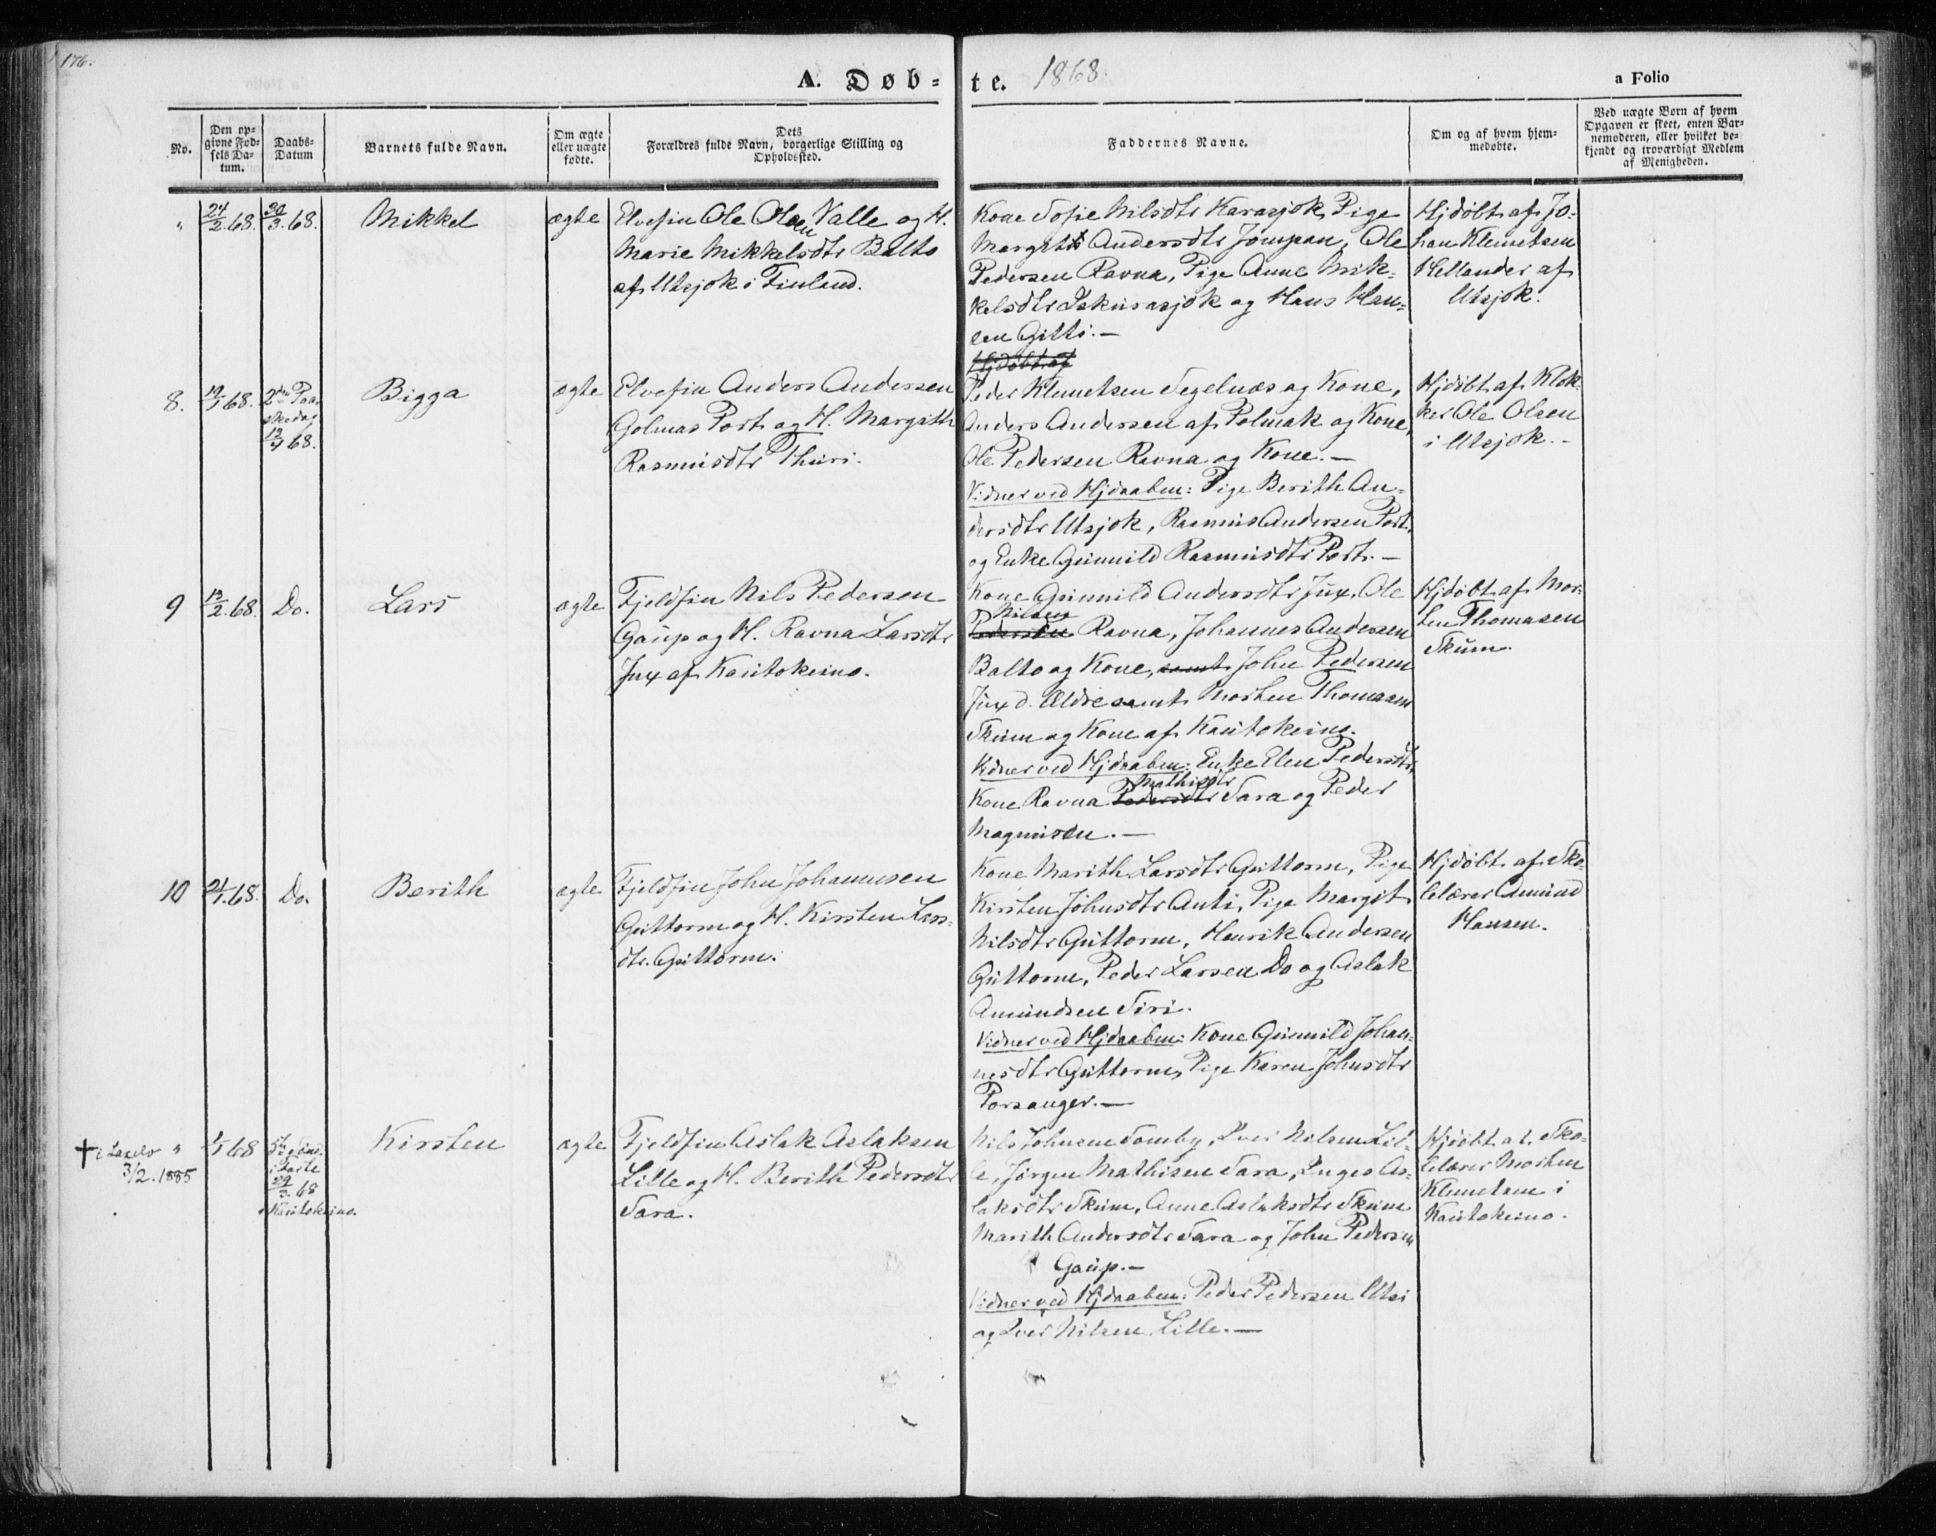 176.
A. Døb-
te. 1868.
a Folio
No.
Den op-
givne Fød-
sels Da-
tum.
Daabs-
Datum
Barnets fulde Navn.
Om ægte
eller uægte
fødte.
Dets
Forældres fulde Navn, borgerlige Stilling og
Opholdssted.
Faddernes Navne.
Om og af hvem hjem-
medøbte.
Ved uægte Børn af hvem
Opgaven er skeet, enten Bar-
nemoderen, eller hvilket be-
kjendt og troværdigt Medlem
af Menigheden.
"
24/2.68.
30/3.68.
Mikkel
ægte
Elvefin Ole Olsen Valle og H.
Marie Mikkelsdtr Balto
af Utsjok i Finland.
Kone Sofie Nilsdtr Karasjok, Pige
Margith Andersdtr Jompan, Ole
Pedersen Ravna, Pige Anne Mik-
kelsdtr Iskurasjok og Hans Han-
sen Gitti.—
Hjdøbt af
Hjdøbt af Jo-
han Klemetsen
Hellander af
Utsjok.
8.
19/1 68.
2den Paa-
skedag
13/4 68.
Bigga
ægte
Elvefin Anders Andersen
Golmas Port og H. Margith
Rasmusdtr Thuri.
Peder Klemetsen Segelnæs og Kone,
Anders Andersen af Polmak og Kone,
Ole Pedersen Ravna og Kone.—
Vidner ved Hjdaaben: Pige Berith An-
dersdtr Utsjok, Rasmus Andersen Port
og Enke Gunnild Rasmusdtr Port.—
Hjdøbt af Klok-
ker Ole Olsen
i Utsjok.-
9
13/2.68.
Do.
Lars
ægte
Fjeldfin Nils Pedersen
Gaup og H. Ravna Larsdtr
Jux af Kautokeino.
Kone Gunnild Andersdtr Jux, Ole
Nilsen
Pedersen Ravna, Johannes Andersen
Balto og Kone, samt John Pedersen
Jux d. Ældre samt Morten Thomasen
Skum og Kone af Kautokeino.
Vidner ved Hjdaaben: Enke Elen Pedersdtr,
Mathisdtr
Kone Ravna Pedersdtr Sara og Peder
Magnusen.—
Hjdøbt af Mor-
ten Thomasen
Skum.
10
24/1.68.
Do.
Berith
ægte
Fjeldfin John Johannesen
Guttorm og H. Kirsten Lars-
dtr. Guttorm.
Kone Marith Larsdtr Guttorm, Pige
Kirsten Johnsdtr Anti, Pige Margit
Nilsdtr Guttorm, Henrik Andersen
Guttorm, Peder Larsen Do og Aslak
Amundsen Siri.
Vidner ved Hjdaaben: Kone Gunnild Johan-
nesdtr Guttorm, Pige Karen Johnsdtr
Porsanger.—
Hjdøbt af Sko-
lelærer Amund
Hansen.
† i Laxelv "
3/2.1885
1/1 68
5te Sønd.
i Faste
29/3.68
i Kautokeino.
Kirsten
ægte
Fjeldfin Aslak Aslaksen
Lille og H. Berith Pedersdtr
Sara.
Nils Johnsen Somby, Iver Nilsen Lil-
le, Jørgen Mathisen Sara, Inger As-
laksdtr Skum, Anne Aslaksdtr Skum
Marith Andersdtr Sara og John Pedersen
Gaup.—
Vidner ved Hjdaaben: Peder Pedersen Utsi
og Iver Nilsen Lille.—
Hjdøbt af Sko-
lelærer Morten
Klemetsen i
Kautokeino.